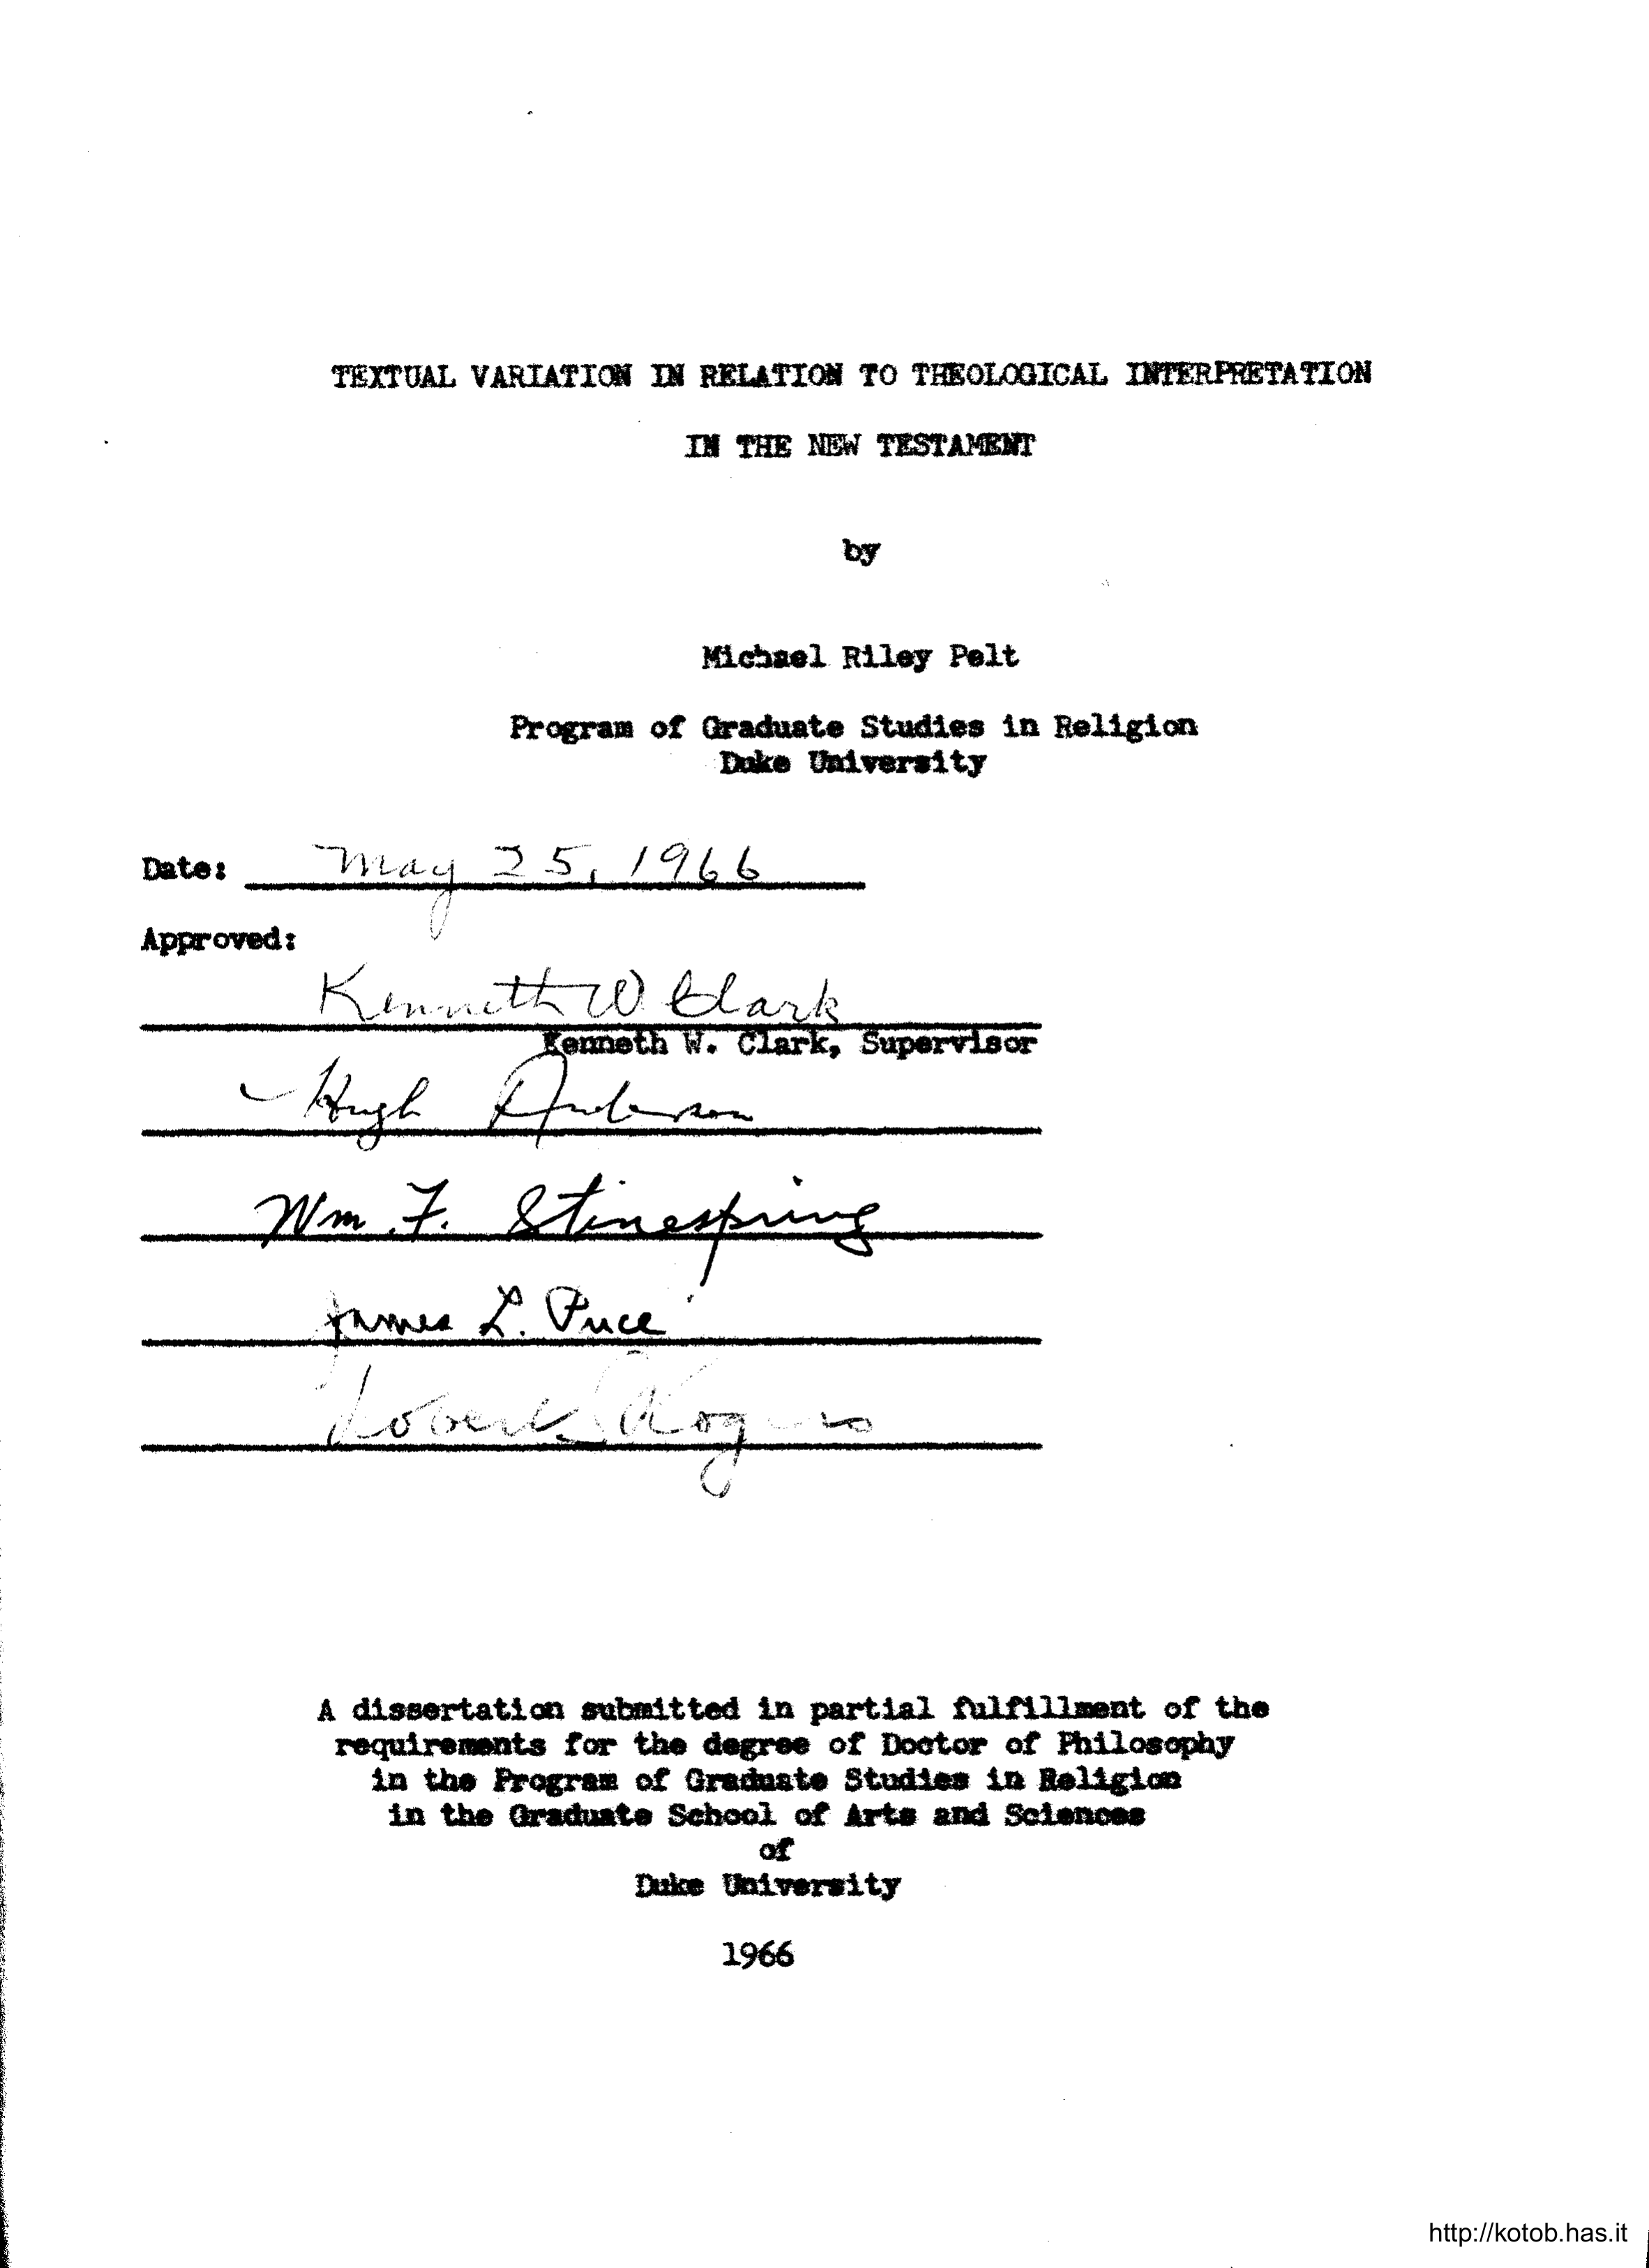 TEXTUAL VARIATION IN RELATION TO THEOLOGICAL INTERPRETATION
IN THE NEW TESTAMENT
by
Michael Riley Pelt
Program of Graduate Studies in Religion
Duke University
Date: May 25, 1966
Approved:
Kenneth W Clark
Kenneth W. Clark, Supervisor
Hugh Anderson
Wm. F. Stinespring
James L. Price
Robert Rogers
A dissertation submitted in partial fulfillment of the
requirements for the degree of Doctor of Philosophy
in the Program of Graduate Studies in Religion
in the Graduate School of Arts and Sciences
of
Duke University
1966
http://kotob.has.it